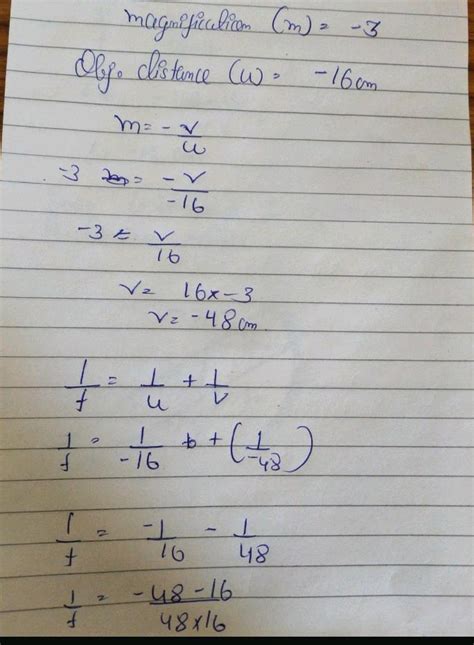 magnification (m) = -3
Obj. distance (u) = -16cm
m = -v/u
-3 = -v/-16
-3 = v/16
v = 16x-3
v = -48cm
1/f = 1/u + 1/v
1/f = 1/-16 + (1/-48)
1/f = -1/16 - 1/48
1/f = -48-16/48x16